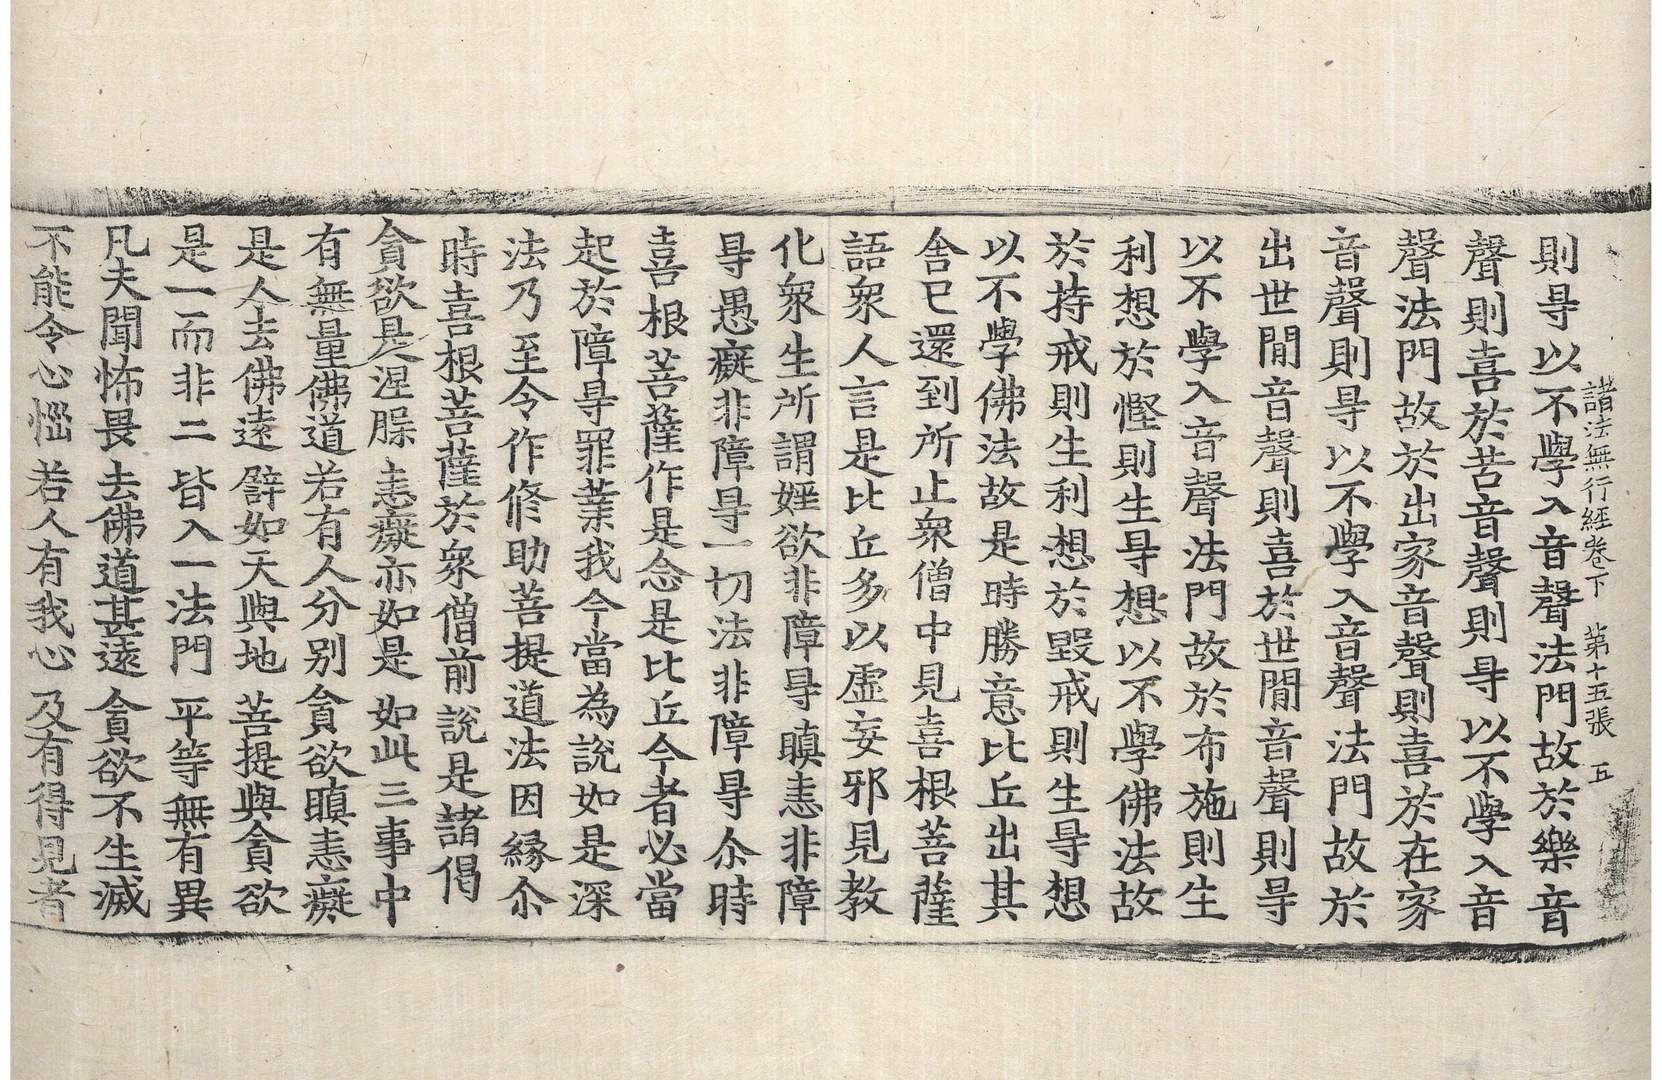 諸法無行経卷下　第十五張　五
則㝵以不學入音聲法門故於樂音
聲則喜於苦音聲則㝵以不學入音
聲法門故於出家音聲則喜於在家
音聲則㝵以不學入音聲法門故於
出世間音聲則喜於世間音聲則㝵
以不學入音聲法門故於布施則生
利想於慳則生㝵想以不學佛法故
於持戒則生利想於毀戒則生㝵想
以不學佛法故是時勝意比丘出其
舍已還到所止衆僧中見喜根菩薩
語衆人言是比丘多以虛妄邪見教
化衆生所謂婬欲非障㝵瞋恚非障
㝵愚癡非障㝵一切法非障㝵尒時
喜根菩薩作是念是比丘今者必當
起於障㝵罪業我今當為說如是深
法乃至令作修助菩提道法因緣尒
時喜根菩薩於衆僧前說是諸偈
貪欲是涅槃　恚癡亦如是　如此三事中
有無量佛道　若有人分别　貪欲瞋恚癡
是人去佛遠　譬如天與地　菩提與貪欲
是一而非二　皆入一法門　平等無有異
凡夫聞怖畏　去佛道甚遠　貪欲不生滅
不能令心惱　若人有我心　及有得見者